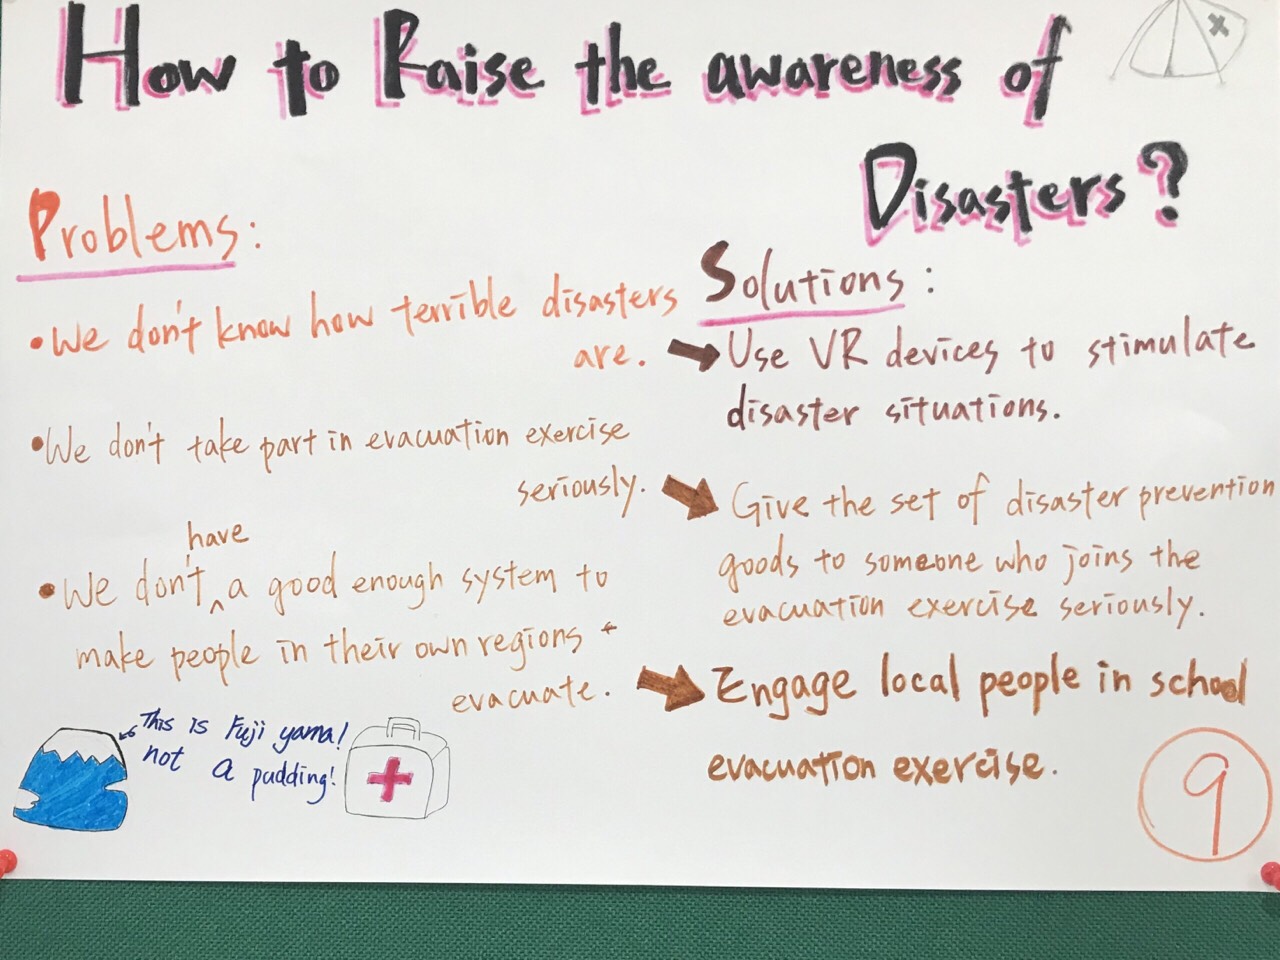 How to Raise the awareness of
Disasters?
Problems:
• We don't know how terrible disasters
are.
• We don't take part in evacuation exercise
seriously.
have
• We don't ^ a good enough system to
make people in their own regions
evacuate.
This is Fuji yama!
not a pudding!
Solutions:
Use VR devices to stimulate
disaster situations.
Give the set of disaster prevention
goods to someone who joins the
evacuation exercise seriously.
Engage local people in school
evacuation exercise.
9